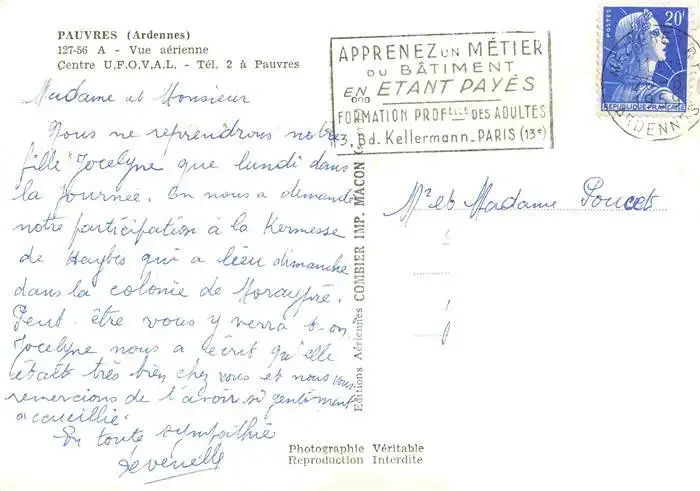 PAUVRES (Ardennes)
127-56 A - Vue aérienne
Centre U.F.O.V.A.L. - Tél. 2 à Pauvres
Madame et Monsieur
Nous ne reprendrons notre
fille Jocelyne que lundi dans
la journée. On nous a demandé
notre participation à la Kermesse
de Haybes qui a lieu dimanche
dans la colonie de Moraypré.
Peut-être vous y verra t-on
Jocelyne nous a écrit qu'elle
était très bien chez vous et nous vous
remercions de l'avoir si gentiment
accueillie.
En toute sympathie
Editions Aériennes COMBIER IMP. MACON
APPRENEZ UN MÉTIER
DU BÂTIMENT
EN ETANT PAYÉS
FORMATION PROFELLE DES ADULTES
13, Bd. Kellermann_PARIS (13e)
POSTES
20f
REPUBLIQUE FRANÇAISE
ARDENNES
Mr et Madame Poucet
Photographie Véritable
Reproduction Interdite